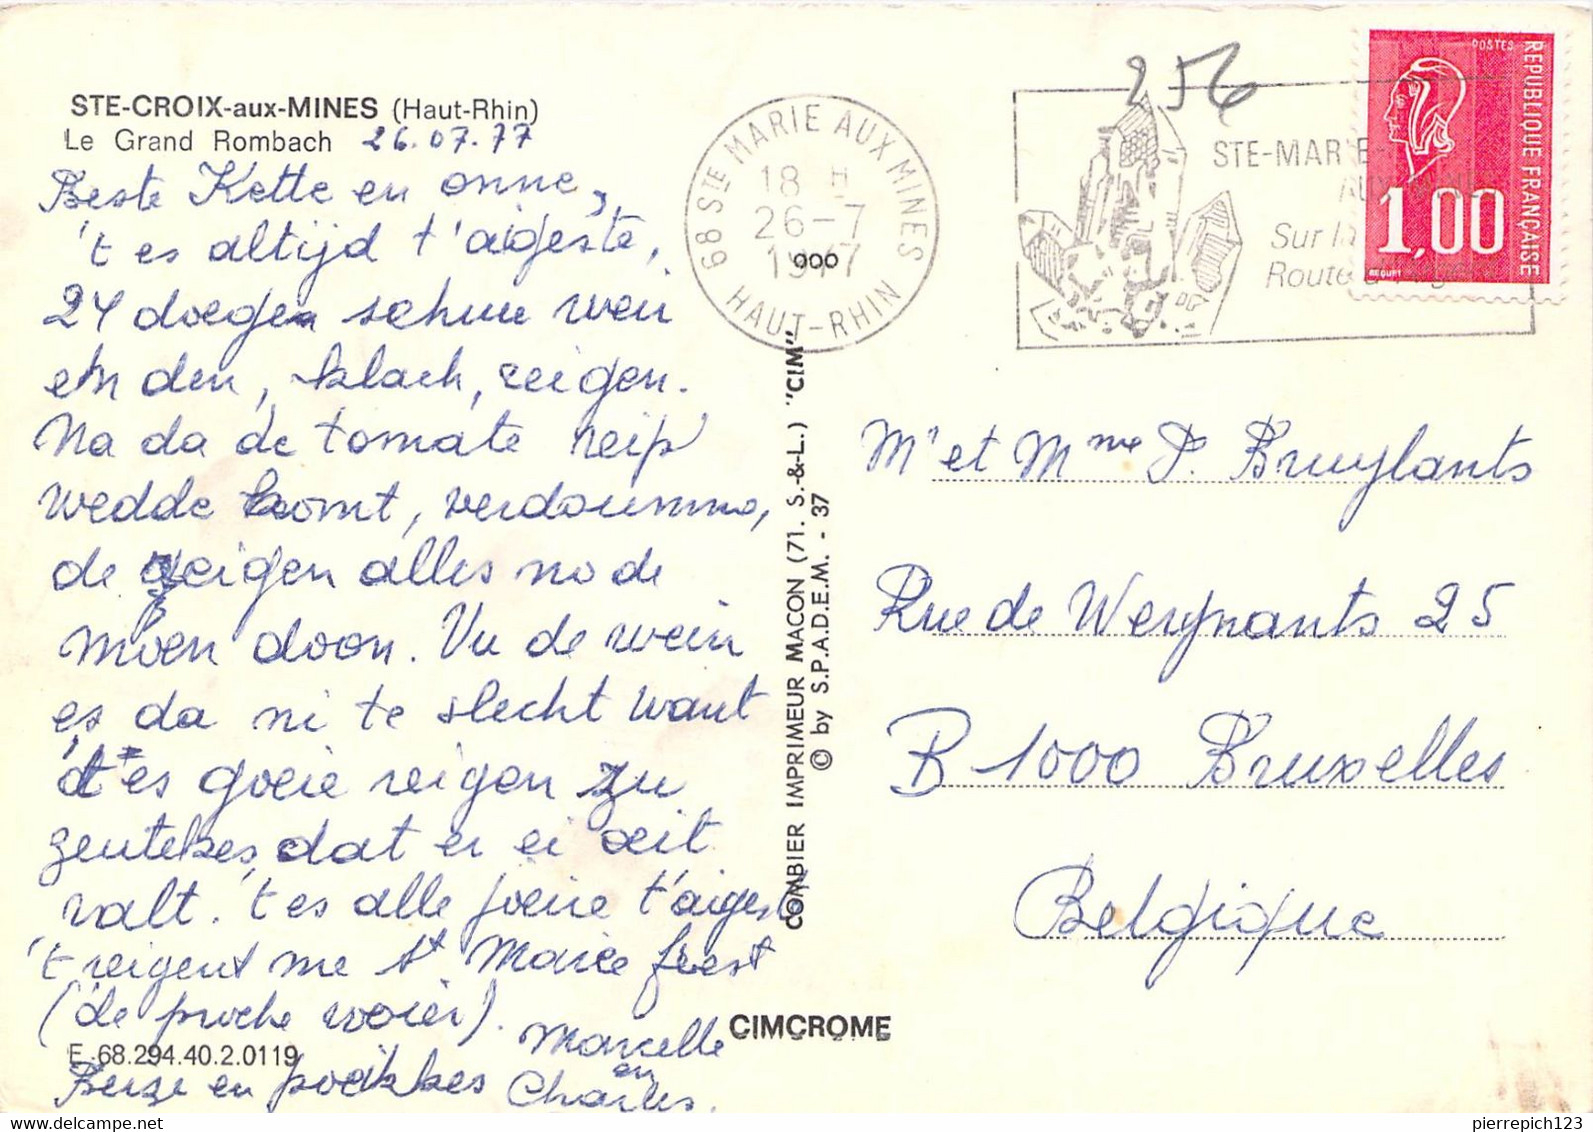 STE-CROIX-aux-MINES (Haut-Rhin)
Le Grand Rombach 26.07.77
Beste Kette en onne,
't es altijd t'aigeste,
24 doegen schuue wei
en den, klach, reigen.
Na da de tomate reip
wedde komt, verdoumme,
de reigen alles no de
moen doon. Vu de wein
es da ni te slecht want
't es goeie reigen zu
zeutekes, dat er ei oeit
valt. 't es alle joeire t'aigeste
't reigent me St Marie feest
(de proche voier).
Beize en poeikkes Marcelle
en
Charles.
E 68.294.40.2.0119
256
68 STE MARIE AUX MINES
18 H
26-7
1977
HAUT-RHIN
000
STE-MARIE-
AUX
Sur la
Route
POSTES
REPUBLIQUE FRANÇAISE
1,00
BEQUET
COMBIER IMPRIMEUR MACON (71. S.-&-L.) "CIM"
© by S.P.A.D.E.M. - 37
CIMCROME
Mr et Mme P. Bruylants
Rue de Wergnants 25
B 1000 Bruxelles
Belgique
delcampe.net
pierrepich123